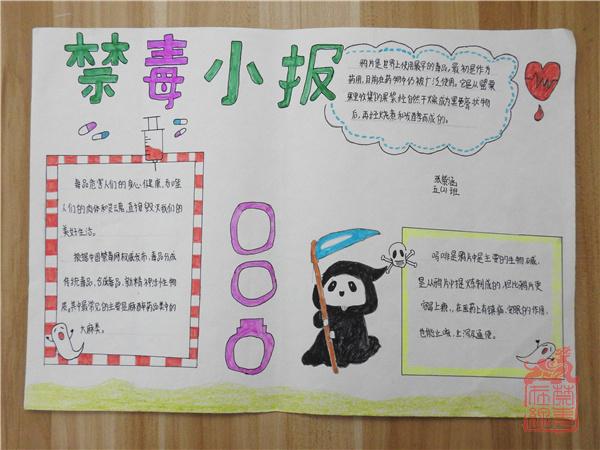 禁毒小报
鸦片是世界上使用最早的毒品,最初是作为
药用,目前在药物中仍被广泛使用。它是从罂粟
果里收集的果浆,经自然干燥成为黑膏膏状物
后,再经烧煮和发酵而成的。
五(1)班
毒品危害人们的身心健康,吞噬
人们的肉体和灵魂,直接毁灭我们的
美好生活。
根据中国禁毒网权威发布,毒品分成
传统毒品,合成毒品,新精神活性物
质,其中最常见的主要是麻醉药品类中的
大麻类。
吗啡是鸦片中最主要的生物碱,
是从鸦片中提炼制成的,它比鸦片更
容易上瘾,在医药上有镇痛、催眠的作用,
也能止咳,上泻及通便。